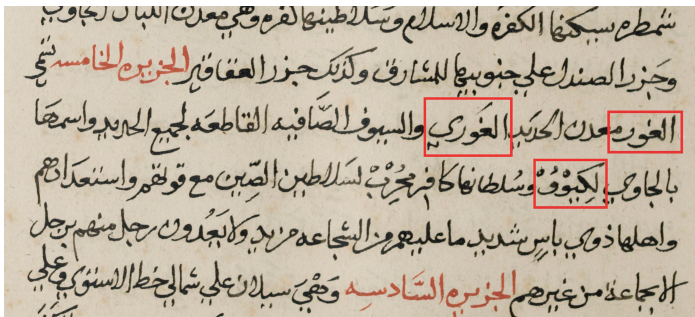 شمطره يسكنها الكفره والاسلام وسلاطينها كفره وهي معدن اللبان الجاوي
وجزر الصندل علي جنوبيها للمشارق وكذلك جزر العقاقير الجزيره الخامسه تسمى
الغور معدن الحديد الغوري والسيوف الصافيه القاطعه لجميع الحديد واسمها
بالجاوي لكيوو وسلطانها كافر محرب لسلاطين الصين مع قوتهم واستعدادهم
واهلها ذوي باس شديد ما عليهم من الشجاعه مزيد ولا يعدون رجل منهم برجل
الا بجماعة من غيرهم الجزيره السادسه وهي سيلان علي شمالي خط الاستوي وعلي